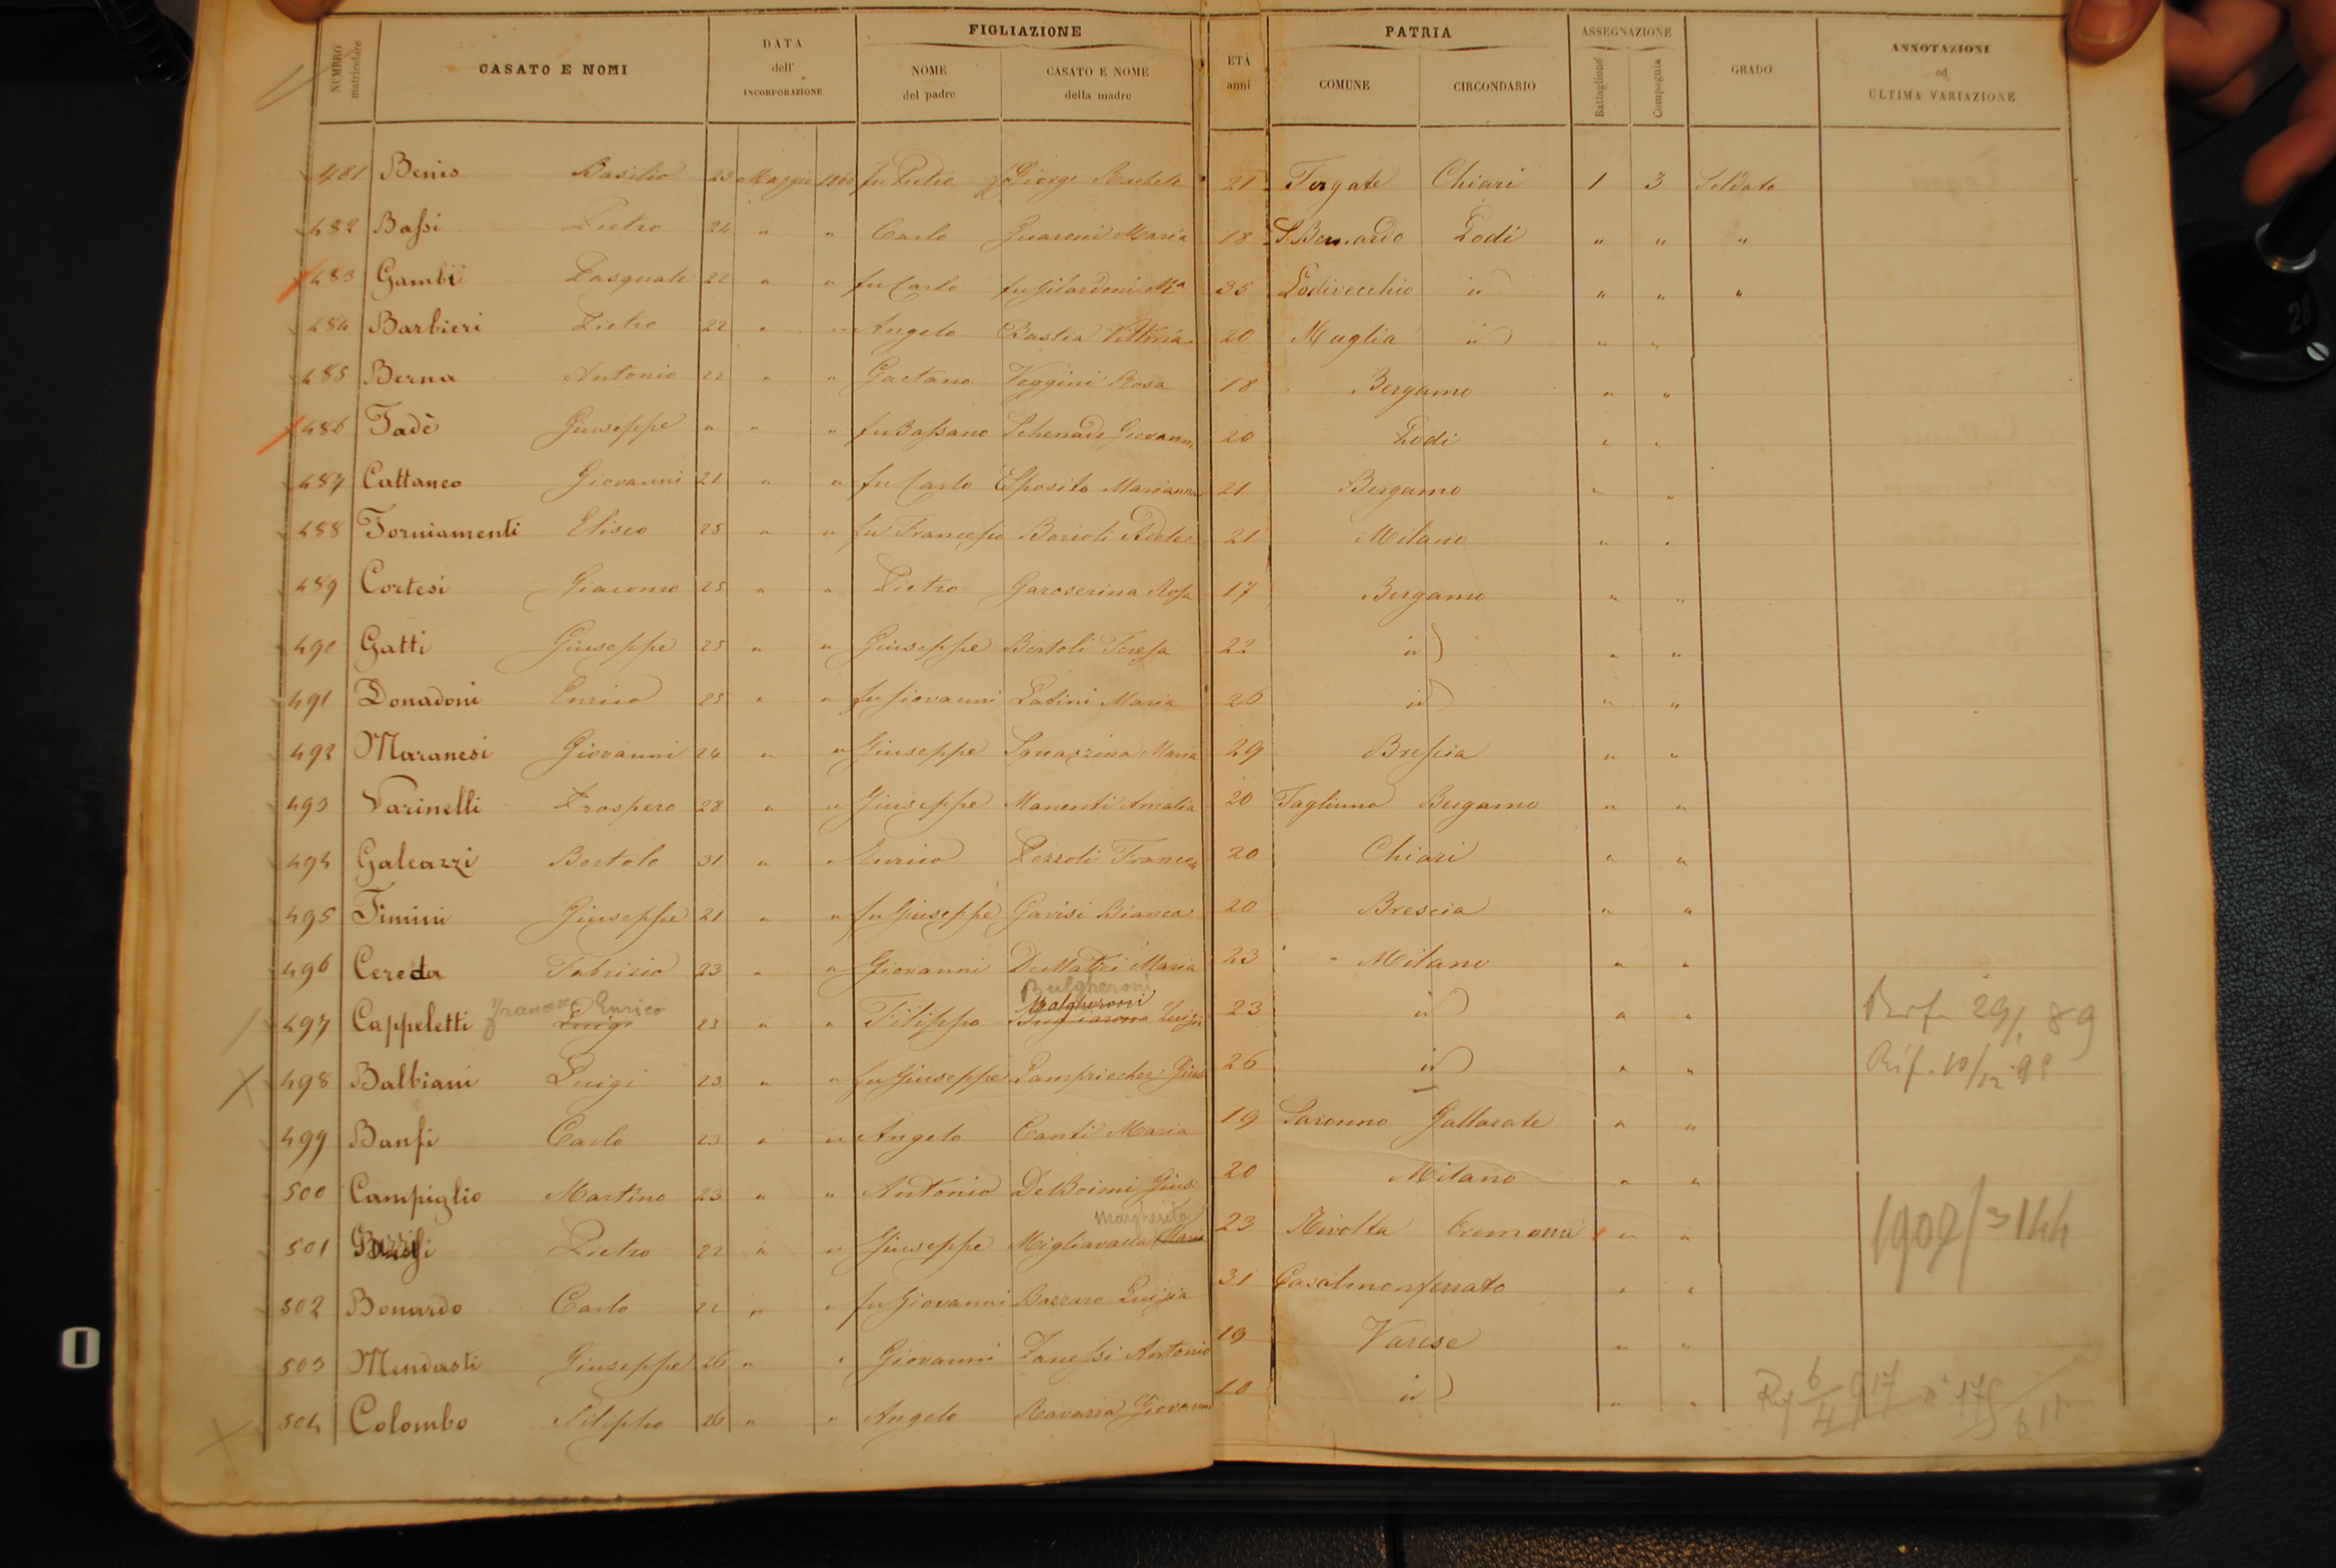 NUMERO matricolare CASATO E NOMI DATA dell' INCORPORAZIONE FIGLIAZIONE NOME del padre CASATO E NOME della madre ETÀ anni PATRIA COMUNE CIRCONDARIO ASSEGNAZIONE Battaglione Compagnia GRADO ANNOTAZIONI ed ULTIMA VARIAZIONE
481 Benis Basilio 23 Maggio 1860 fu Pietro Giorgi Rachele 21 Tergate Chiari 1 3 Soldato
482 Bassi Pietro 24 " " Carlo Guareni Maria 18 S. Bernardo Lodi " " "
483 Gambi Pasquale 22 " " fu Carlo fu Gilardoni Mª 35 Lodivecchio id " " "
484 Barbieri Pietro 22 " " Angelo Bastia Vittoria 20 Muglia id " "
485 Berna Antonio 22 " " Gaetano Veggini Rosa 18 Bergamo " "
486 Fadè Giuseppe " " " fu Bassano Giovanna 20 Lodi " "
487 Cattaneo Giovanni 21 " " fu Carlo Esposito Marianna 21 Bergamo " "
488 Forniamenti Eliseo 25 " " fu Francesco Borioli Adele 21 Milano " "
489 Cortesi Giacomo 25 " " Pietro Garoserina Rosa 17 Bergamo " "
490 Gatti Giuseppe 25 " " Giuseppe Bertoli Teresa 22 id " "
491 Donadoni Enrico 25 " " fu Giovanni Ladini Maria 26 id " "
492 Maranesi Giovanni 24 " " Giuseppe Maria 29 Brescia " "
493 Varinelli Prospero 28 " " Giuseppe Manenti Amalia 20 Tagliuno Bergamo " "
494 Galeazzi Bortolo 31 " " Enrico Pezzoli Frances 20 Chiari " "
495 Fimini Giuseppe 21 " " fu Giuseppe Gavisi Bianca 20 Brescia " "
496 Cereda Fabrizio 23 " " Giovanni De Mattei Maria 23 " Milano " "
Francesco Enrico Bulgheroni
497 Cappeletti Luigi 23 " " Filippo Malgheroni Luigia 23 id " " 29/1 89
498 Balbiani Luigi 23 " " fu Giuseppe Gius 26 id " " Rif. 10/12.98
499 Banfi Carlo 23 " " Angelo Canti Maria 19 Saronno Gallarate " "
500 Campiglio Martino 23 " " Antonio De Boimi Gius. 20 Milano " "
Margherita
501 Pietro 22 " " Giuseppe Migliavacca Maria 23 Rivolta Cremona " " 1907/3144
502 Bonardo Carlo 22 " " fu Giovanni Bazzaro Luigia 31 Casalmonferrato " "
503 Mendasti Giuseppe 26 " " Giovanni Zanessi Antonio 19 Varese " "
504 Colombo Filippo 26 " " Angelo Ravazza Giovanna 18 id " "
28